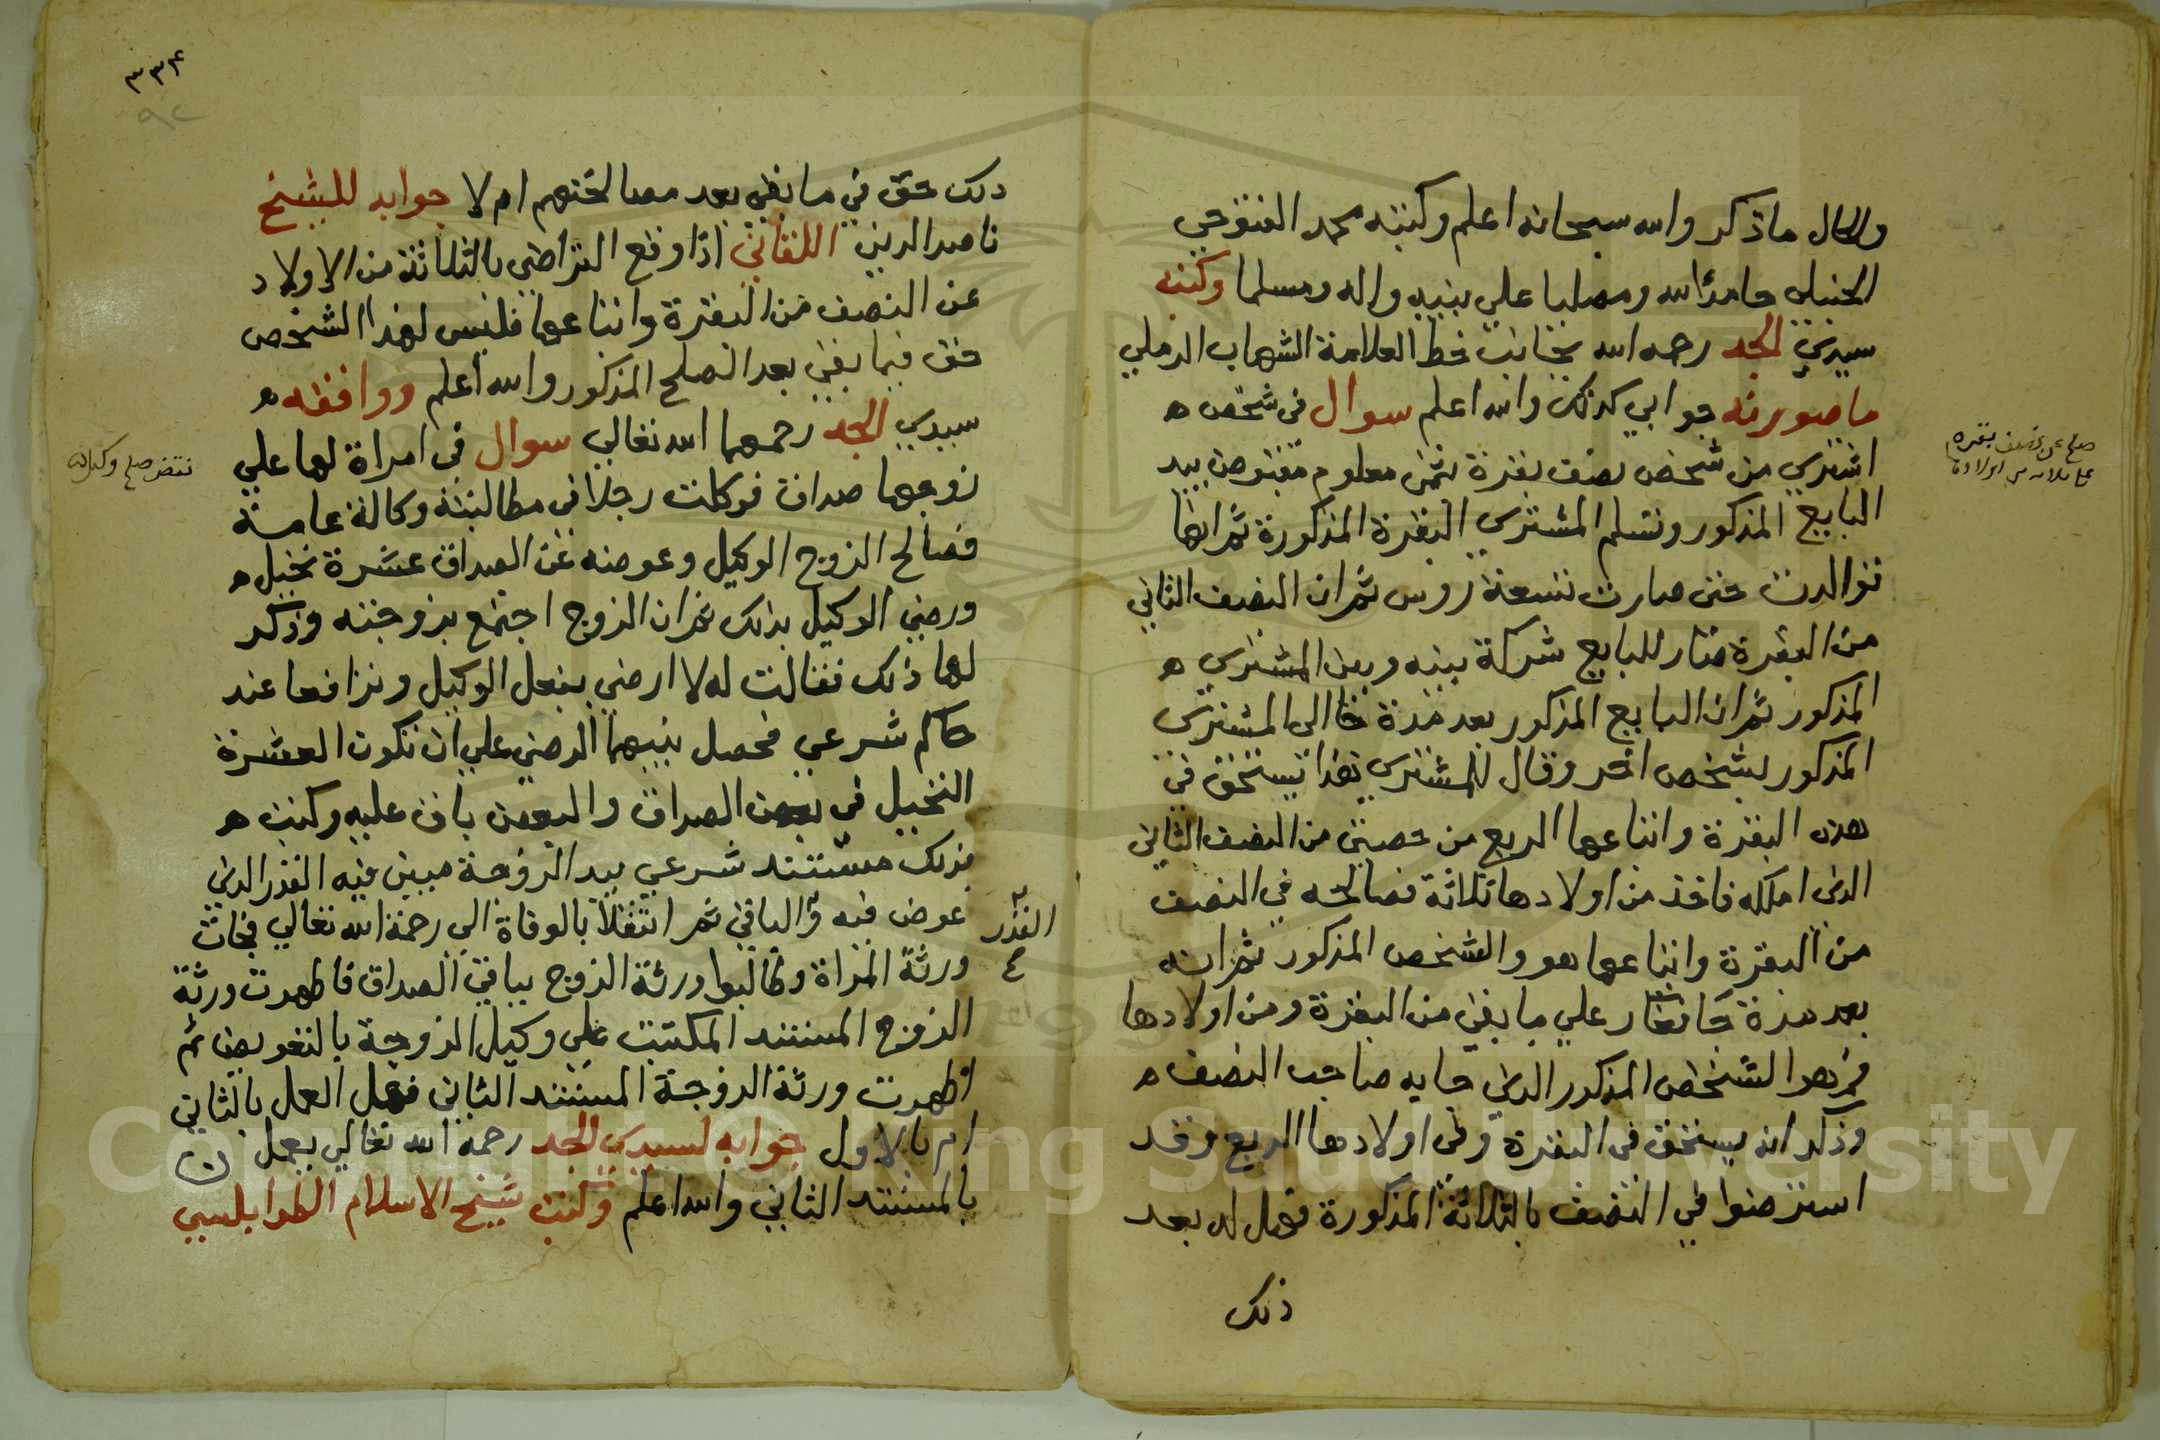 والحال ماذكر والله سبحانه اعلم وكتبه محمد الفتوحي
الحنبلي حامدا لله ومصليا علي نبيه واله ومسلما وكتبه
سيدي الجد رحمه الله بجانب خط العلامة الشهاب الرملي
ماصورته جوابي كذلك والله اعلم سوال في شخص ه
اشتري من شخص نصف بقرة بثمن معلوم مقبوض بيد
البايع المذكور وتسلم المشتري البقرة المذكورة ثم انها
توالدت حتى صارت تسعة روس ثم ان النصف الثاني
من البقرة صار للبايع شركة بينه وبين المشتري ه
المذكور ثم ان البايع المذكور بعد مدة جا الى المشتري
المذكور بشخص اخر وقال للمشتري هذا يستحق في
هذه البقرة واتباعها الربع من حصتي من النصف الثاني
الذي املكه فاخذ من اولادها ثلاثة فصالحه في النصف
من البقرة واتباعها هو والشخص المذكور ثم انه
بعد مدة جا على ما بقي من البقرة ومن اولادها
هذا الشخص المذكور الذي جا به صاحب النصف ه
وذكر انه يستحق في البقرة وفي اولادها الربع وقد
استرضوا في النصف بالثلاثة المذكورة فهل له بعد
ذلك
صلح عن نصف بقرة
على ثلاثة من اولادها
٣٣٤
٩٢
ذلك حق في ما بقي بعد مصالحتهم ام لا جوابه للشيخ
ناصر الدين اللقاني اذا وقع التراضي بالثلاثة من الاولاد
عن النصف من البقرة واتباعها فليس لهذا الشخص
حق فيما بقي بعد الصلح المذكور والله أعلم ووافقه ه
سيدي الجد رحمهما الله تعالي سوال في امراة لها علي
زوجها صداق فوكلت رجلا في مطالبته وكالة عامة
فصالح الزوج الوكيل وعوضه عن الصداق عشرة نخيل ه
ورضي الوكيل بذلك ثم ان الزوج اجتمع بزوجته وذكر
لها ذلك فقالت له لا ارضي بفعل الوكيل وترافعا عند
حاكم شرعي فحصل بينهما الرضي علي ان تكون العشرة
النخيل في بعض الصداق والبعض باق عليه وكتبت ه
بذلك مستند شرعي بيد الزوجة مبين فيه القدر الذي
عوض فيه والباقي ثم انتقلا بالوفاة الي رحمة الله تعالي فجات
ورثة المراة وطالبوا ورثة الزوج بباقي الصداق فاظهرت ورثة
الزوج المستند المكتتب علي وكيل الزوجة بالتعويض ثم
اظهرت ورثة الزوجة المستند الثاني فهل العمل بالثاني
ام بالاول جوابه لسيدي الجد رحمه الله تعالي يعمل
بالمستند الثاني والله اعلم وكتب شيخ الاسلام الطرابلسي
القدر
نقض صلح وكيل
Copyright © King Saud University